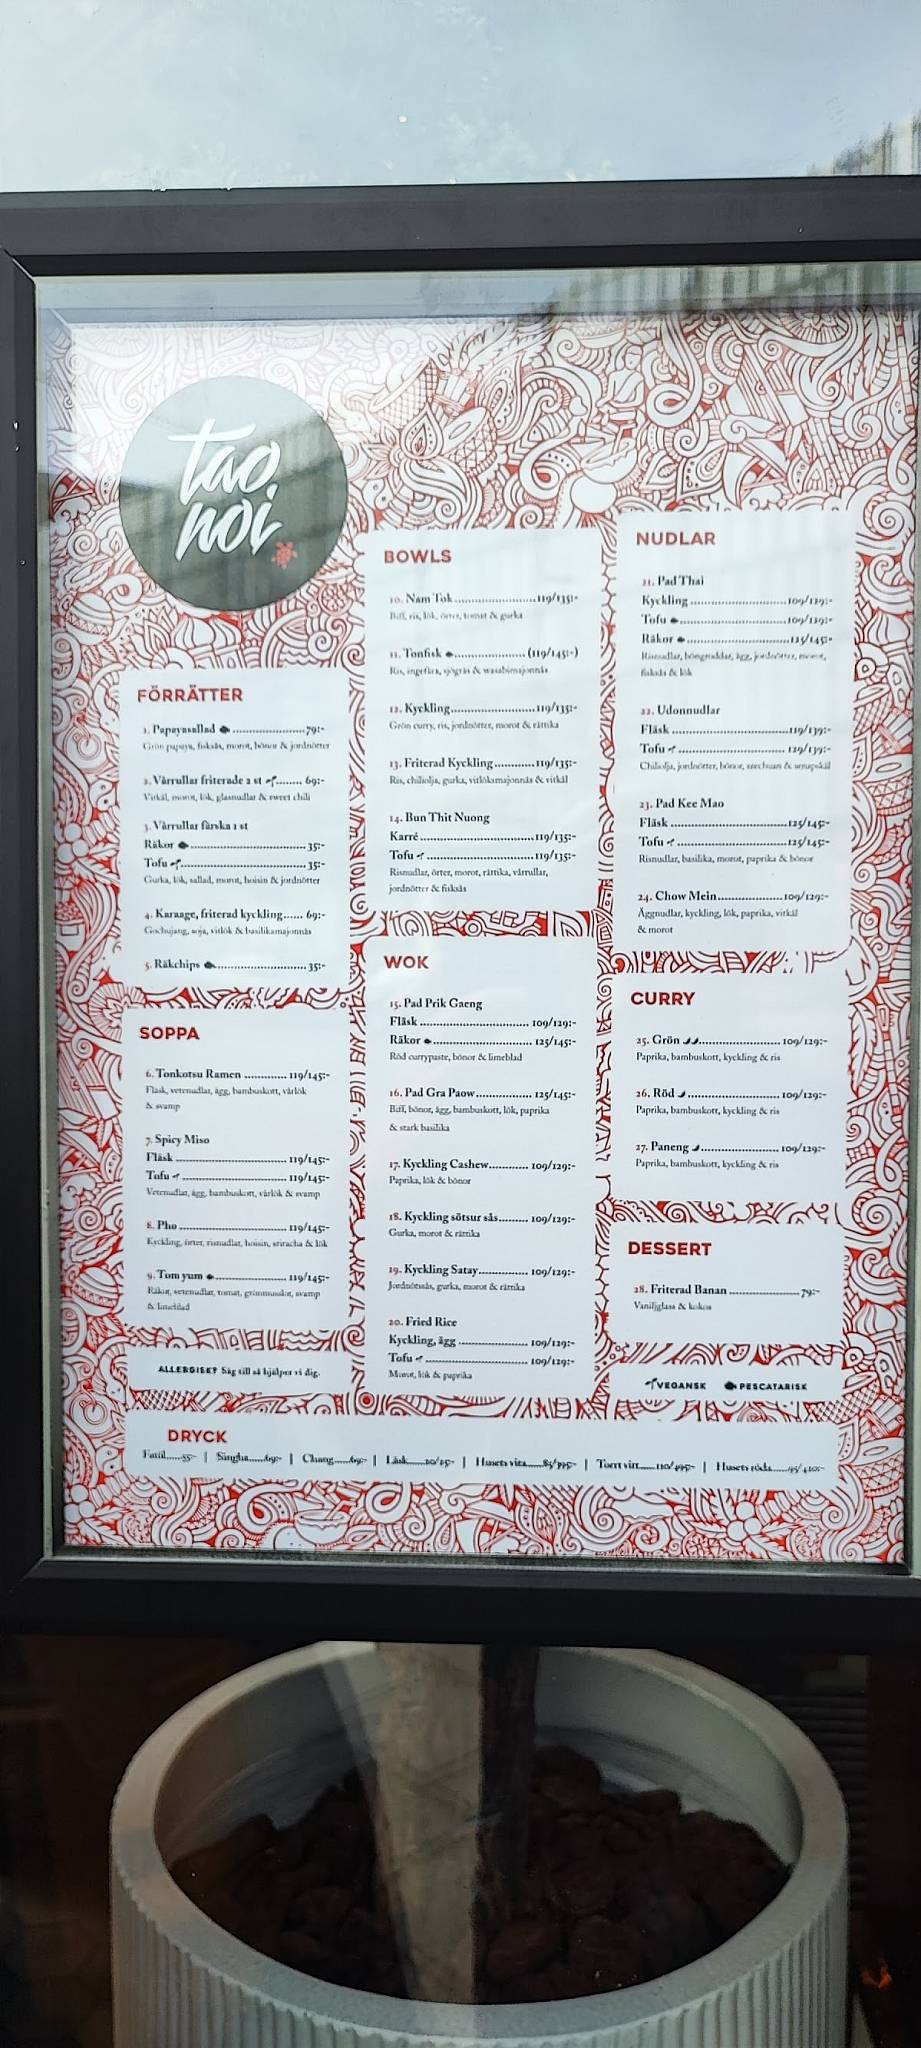 tao
noi
FÖRRÄTTER
1. Papayasallad 79:-
Grön papaya, fisksås, morot, bönor & jordnötter
2. Vårrullar friterade 2 st 69:-
Vitkål, morot, lök, glasnudlar & sweet chili
3. Vårrullar färska 1 st
Räkor 35:-
Tofu 35:-
Gurka, lök, sallad, morot, hoisin & jordnötter
4. Karaage, friterad kyckling 69:-
Gochujang, soja, vitlök & basilikamajonnäs
5. Räkchips 35:-
SOPPA
6. Tonkotsu Ramen 119/145:-
Fläsk, vetenudlar, ägg, bambuskott, vårlök
& svamp
7. Spicy Miso
Fläsk 119/145:-
Tofu 119/145:-
Vetenudlar, ägg, bambuskott, vårlök & svamp
8. Pho 119/145:-
Kyckling, örter, risnudlar, hoisin, sriracha & lök
9. Tom yum 119/145:-
Räkor, vetenudlar, tomat, grönmusslor, svamp
& limeblad
ALLERGISK? Säg till så hjälper vi dig.
BOWLS
10. Nam Tok 119/135:-
Biff, ris, lök, örter, tomat & gurka
11. Tonfisk (119/145:-)
Ris, ingefära, sjögräs & wasabimajonnäs
12. Kyckling 119/135:-
Grön curry, ris, jordnötter, morot & rättika
13. Friterad Kyckling 119/135:-
Ris, chiliolja, gurka, vitlöksmajonnäs & vitkål
14. Bun Thit Nuong
Karré 119/135:-
Tofu 119/135:-
Risnudlar, örter, morot, rättika, vårrullar,
jordnötter & fisksås
WOK
15. Pad Prik Gaeng
Fläsk 109/129:-
Räkor 125/145:-
Röd currypaste, bönor & limeblad
16. Pad Gra Paow 125/145:-
Biff, bönor, ägg, bambuskott, lök, paprika
& stark basilika
17. Kyckling Cashew 109/129:-
Paprika, lök & bönor
18. Kyckling sötsur sås 109/129:-
Gurka, morot & rättika
19. Kyckling Satay 109/129:-
Jordnötssås, gurka, morot & rättika
20. Fried Rice
Kyckling, ägg 109/129:-
Tofu 109/129:-
Morot, lök & paprika
NUDLAR
21. Pad Thai
Kyckling 109/129:-
Tofu 109/129:-
Räkor 125/145:-
Risnudlar, böngroddar, ägg, jordnötter, morot,
fisksås & lök
22. Udonnudlar
Fläsk 119/139:-
Tofu 119/139:-
Chiliolja, jordnötter, bönor, szechuan & senapskål
23. Pad Kee Mao
Fläsk 125/145:-
Tofu 125/145:-
Risnudlar, basilika, morot, paprika & bönor
24. Chow Mein 109/129:-
Äggnudlar, kyckling, lök, paprika, vitkål
& morot
CURRY
25. Grön 109/129:-
Paprika, bambuskott, kyckling & ris
26. Röd 109/129:-
Paprika, bambuskott, kyckling & ris
27. Paneng 109/129:-
Paprika, bambuskott, kyckling & ris
DESSERT
28. Friterad Banan 79:-
Vaniljglass & kokos
VEGANSK PESCATARISK
DRYCK
Fatöl 55:- | Singha 69:- | Chang 69:- | Läsk 20/25:- | Husets vita 85/395:- | Torrt vitt 110/495:- | Husets röda